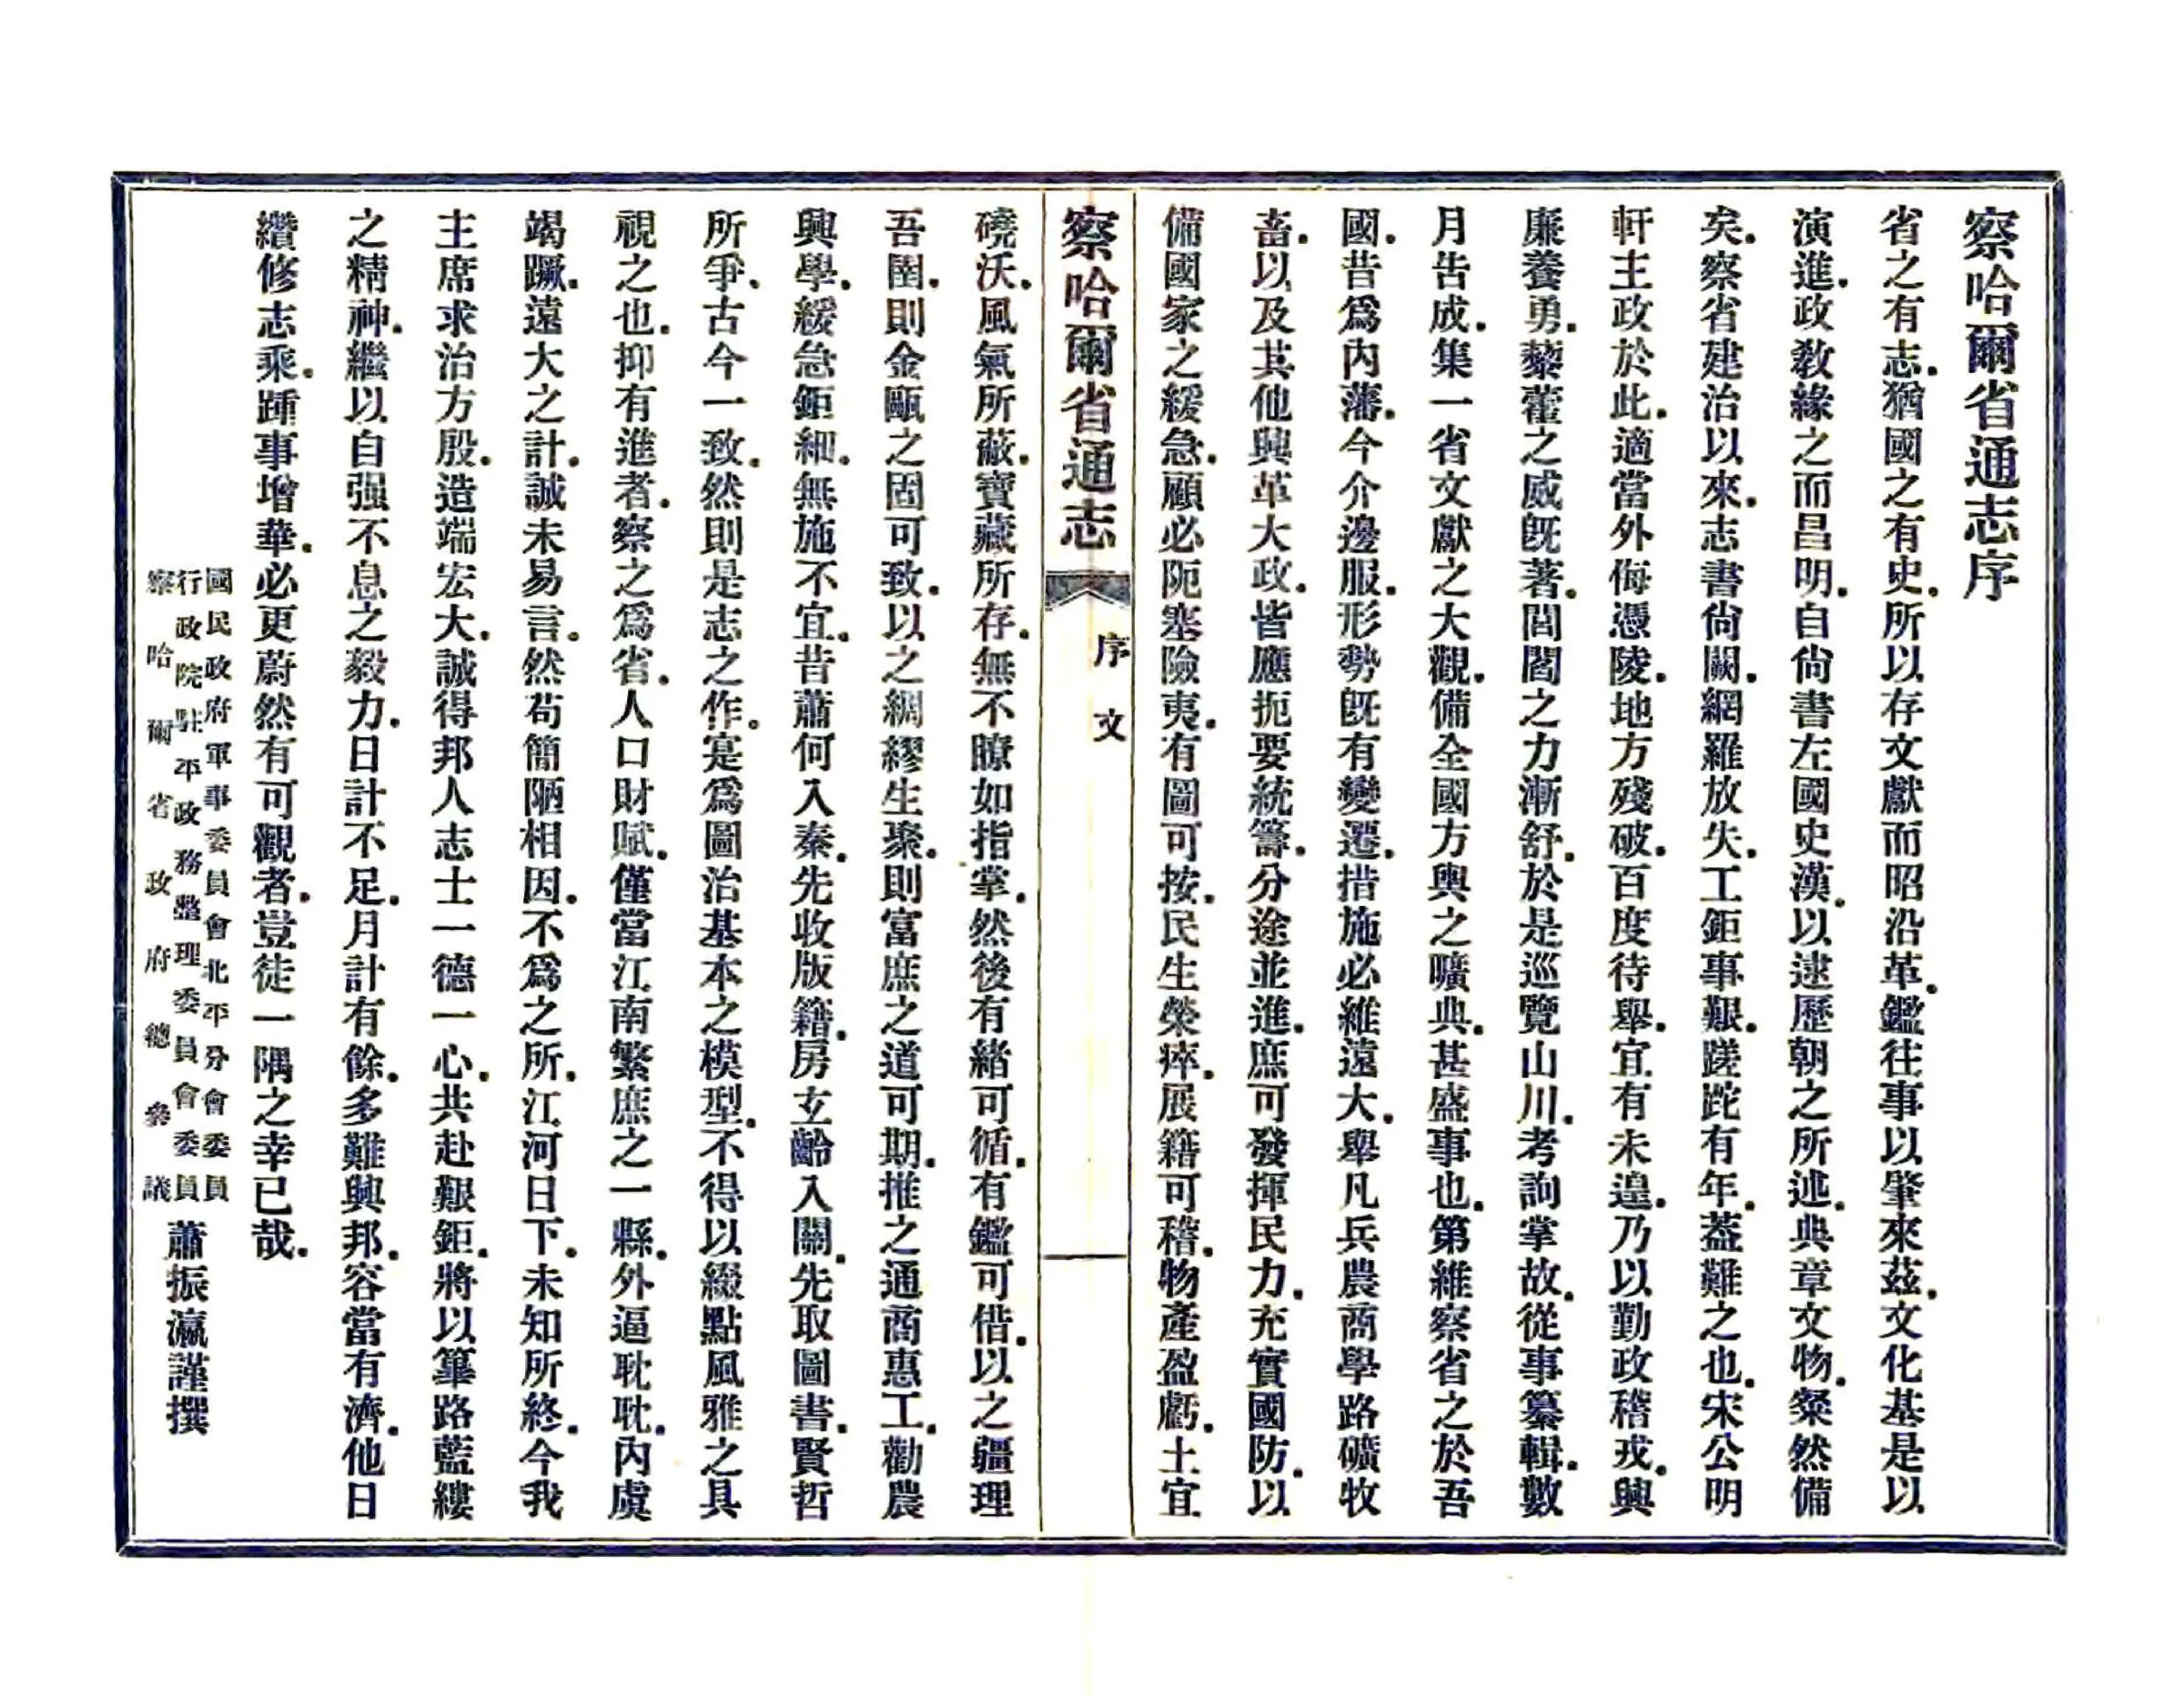 察哈爾省通志序
省之有志.猶國之有史.所以存文獻而昭沿革.鑑往事以肇來茲.文化基是以
演進.政敎緣之而昌明.自尙書左國史漢.以逮歷朝之所述.典章文物.粲然備
矣.察省建治以來.志書尙闕.網羅放失.工鉅事艱.蹉跎有年.蓋難之也.宋公明
軒主政於此.適當外侮憑陵.地方殘破.百度待舉.宜有未遑.乃以勤政稽戎.興
廉養勇.藜藿之威旣著.閭閻之力漸舒.於是巡覽山川.考詢掌故.從事纂輯.數
月吿成.集一省文獻之大觀.備全國方輿之曠典.甚盛事也.第維察省之於吾
國.昔爲內藩.今介邊服.形勢旣有變遷.措施必維遠大.舉凡兵農商學路礦牧
畜.以及其他興革大政.皆應扼要統籌.分途並進.庶可發揮民力.充實國防.以
備國家之緩急.顧必阨塞險夷.有圖可按.民生榮瘁.展籍可稽.物產盈虧.土宜
察哈爾省通志
序文
一
磽沃.風氣所蔽.寶藏所存.無不瞭如指掌.然後有緒可循.有鑑可借.以之疆理
吾圉.則金甌之固可致.以之綢繆生聚.則富庶之道可期.推之通商惠工.勸農
興學.綏急鉅細.無施不宜.昔蕭何入秦.先收版籍.房玄齡入關.先取圖書.賢哲
所爭.古今一致.然則是志之作.寔爲圖治基本之模型.不得以綴點風雅之具
視之也.抑有進者.察之爲省.人口財賦.僅當江南繁庶之一縣.外逼耽耽.內虞
竭蹶.遠大之計.誠未易言.然苟簡陋相因.不爲之所.江河日下.未知所終.今我
主席求治方殷.造端宏大.誠得邦人志士一德一心.共赴艱鉅.將以篳路藍縷
之精神.繼以自强不息之毅力.日計不足.月計有餘.多難興邦.容當有濟.他日
纘修志乘.踵事增華.必更蔚然有可觀者.豈徒一隅之幸已哉.
國民政府軍事委員會北平分會委員
行政院駐平政務整理委員會委員
察哈爾省政府總參議
蕭振瀛謹撰